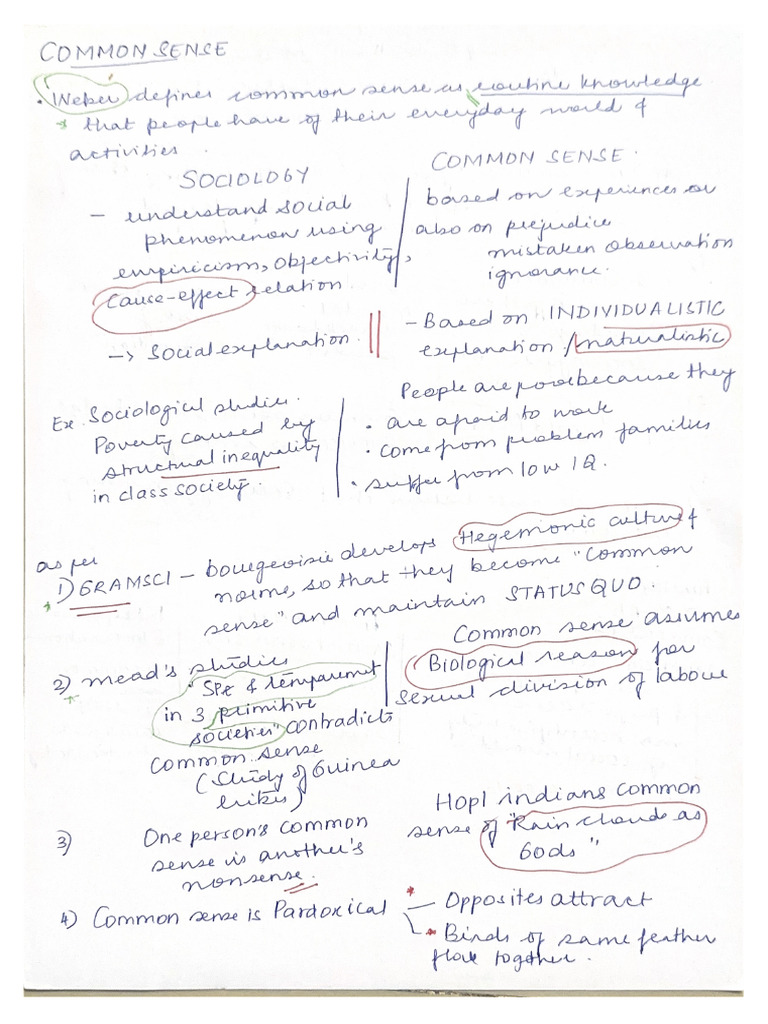 COMMON SENSE
• Weber defines common sense as routine knowledge
* that people have of their everyday world &
activities.
SOCIOLOGY
- understand social
phenomenon using
empiricism, objectivity,
cause-effect relation
-> social explanation.
COMMON SENSE.
based on experiences or
also on prejudice
mistaken observation
ignorance.
- Based on INDIVIDUALISTIC
explanation / naturalistic
Ex. Sociological studies.
Poverty caused by
structural inequality
in class society.
People are poor because they
• are afraid to work
• come from problem families
• suffer from low IQ.
as per
* 1) GRAMSCI - bourgeoisie develops Hegemonic culture &
norms, so that they become "common
sense" and maintain STATUS QUO.
2) mead's studies
"Sex & temparament
in 3 primitive
societies" contradicts
common sense
(study of Guinea
tribes)
Common sense assumes
Biological reason for
sexual division of labour
3) One person's common
sense is another's
nonsense.
HOPI indians common
sense of "Rain clouds as
Gods"
4) Common sense is Pardoxical
* — Opposites attract
* Birds of same feather
flock together.